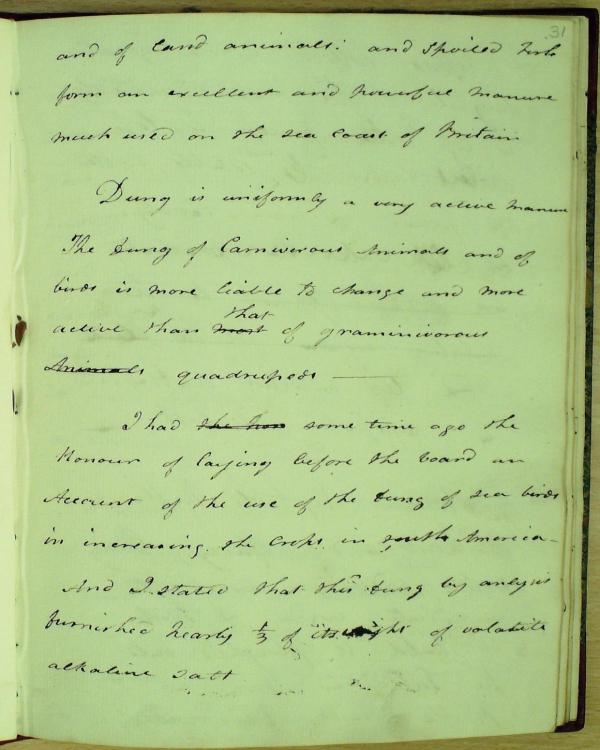 31
and of land animals: and spoiled fish
form an excellent and powerful manure
much used on the sea coast of Britain
Dung is uniformly a very active manure
The dung of Carnivorous Animals and of
birds is more liable to change and more
that
active than most of graminivorous
Animals quadrupeds —
I had the hon some time ago the
Honour of laying before the board an
Account of the use of the dung of sea birds
in increasing the Crops in south America -
And I stated that this dung by anlysis
furnished nearly 1/3 of its weight of volatile
alkaline salt